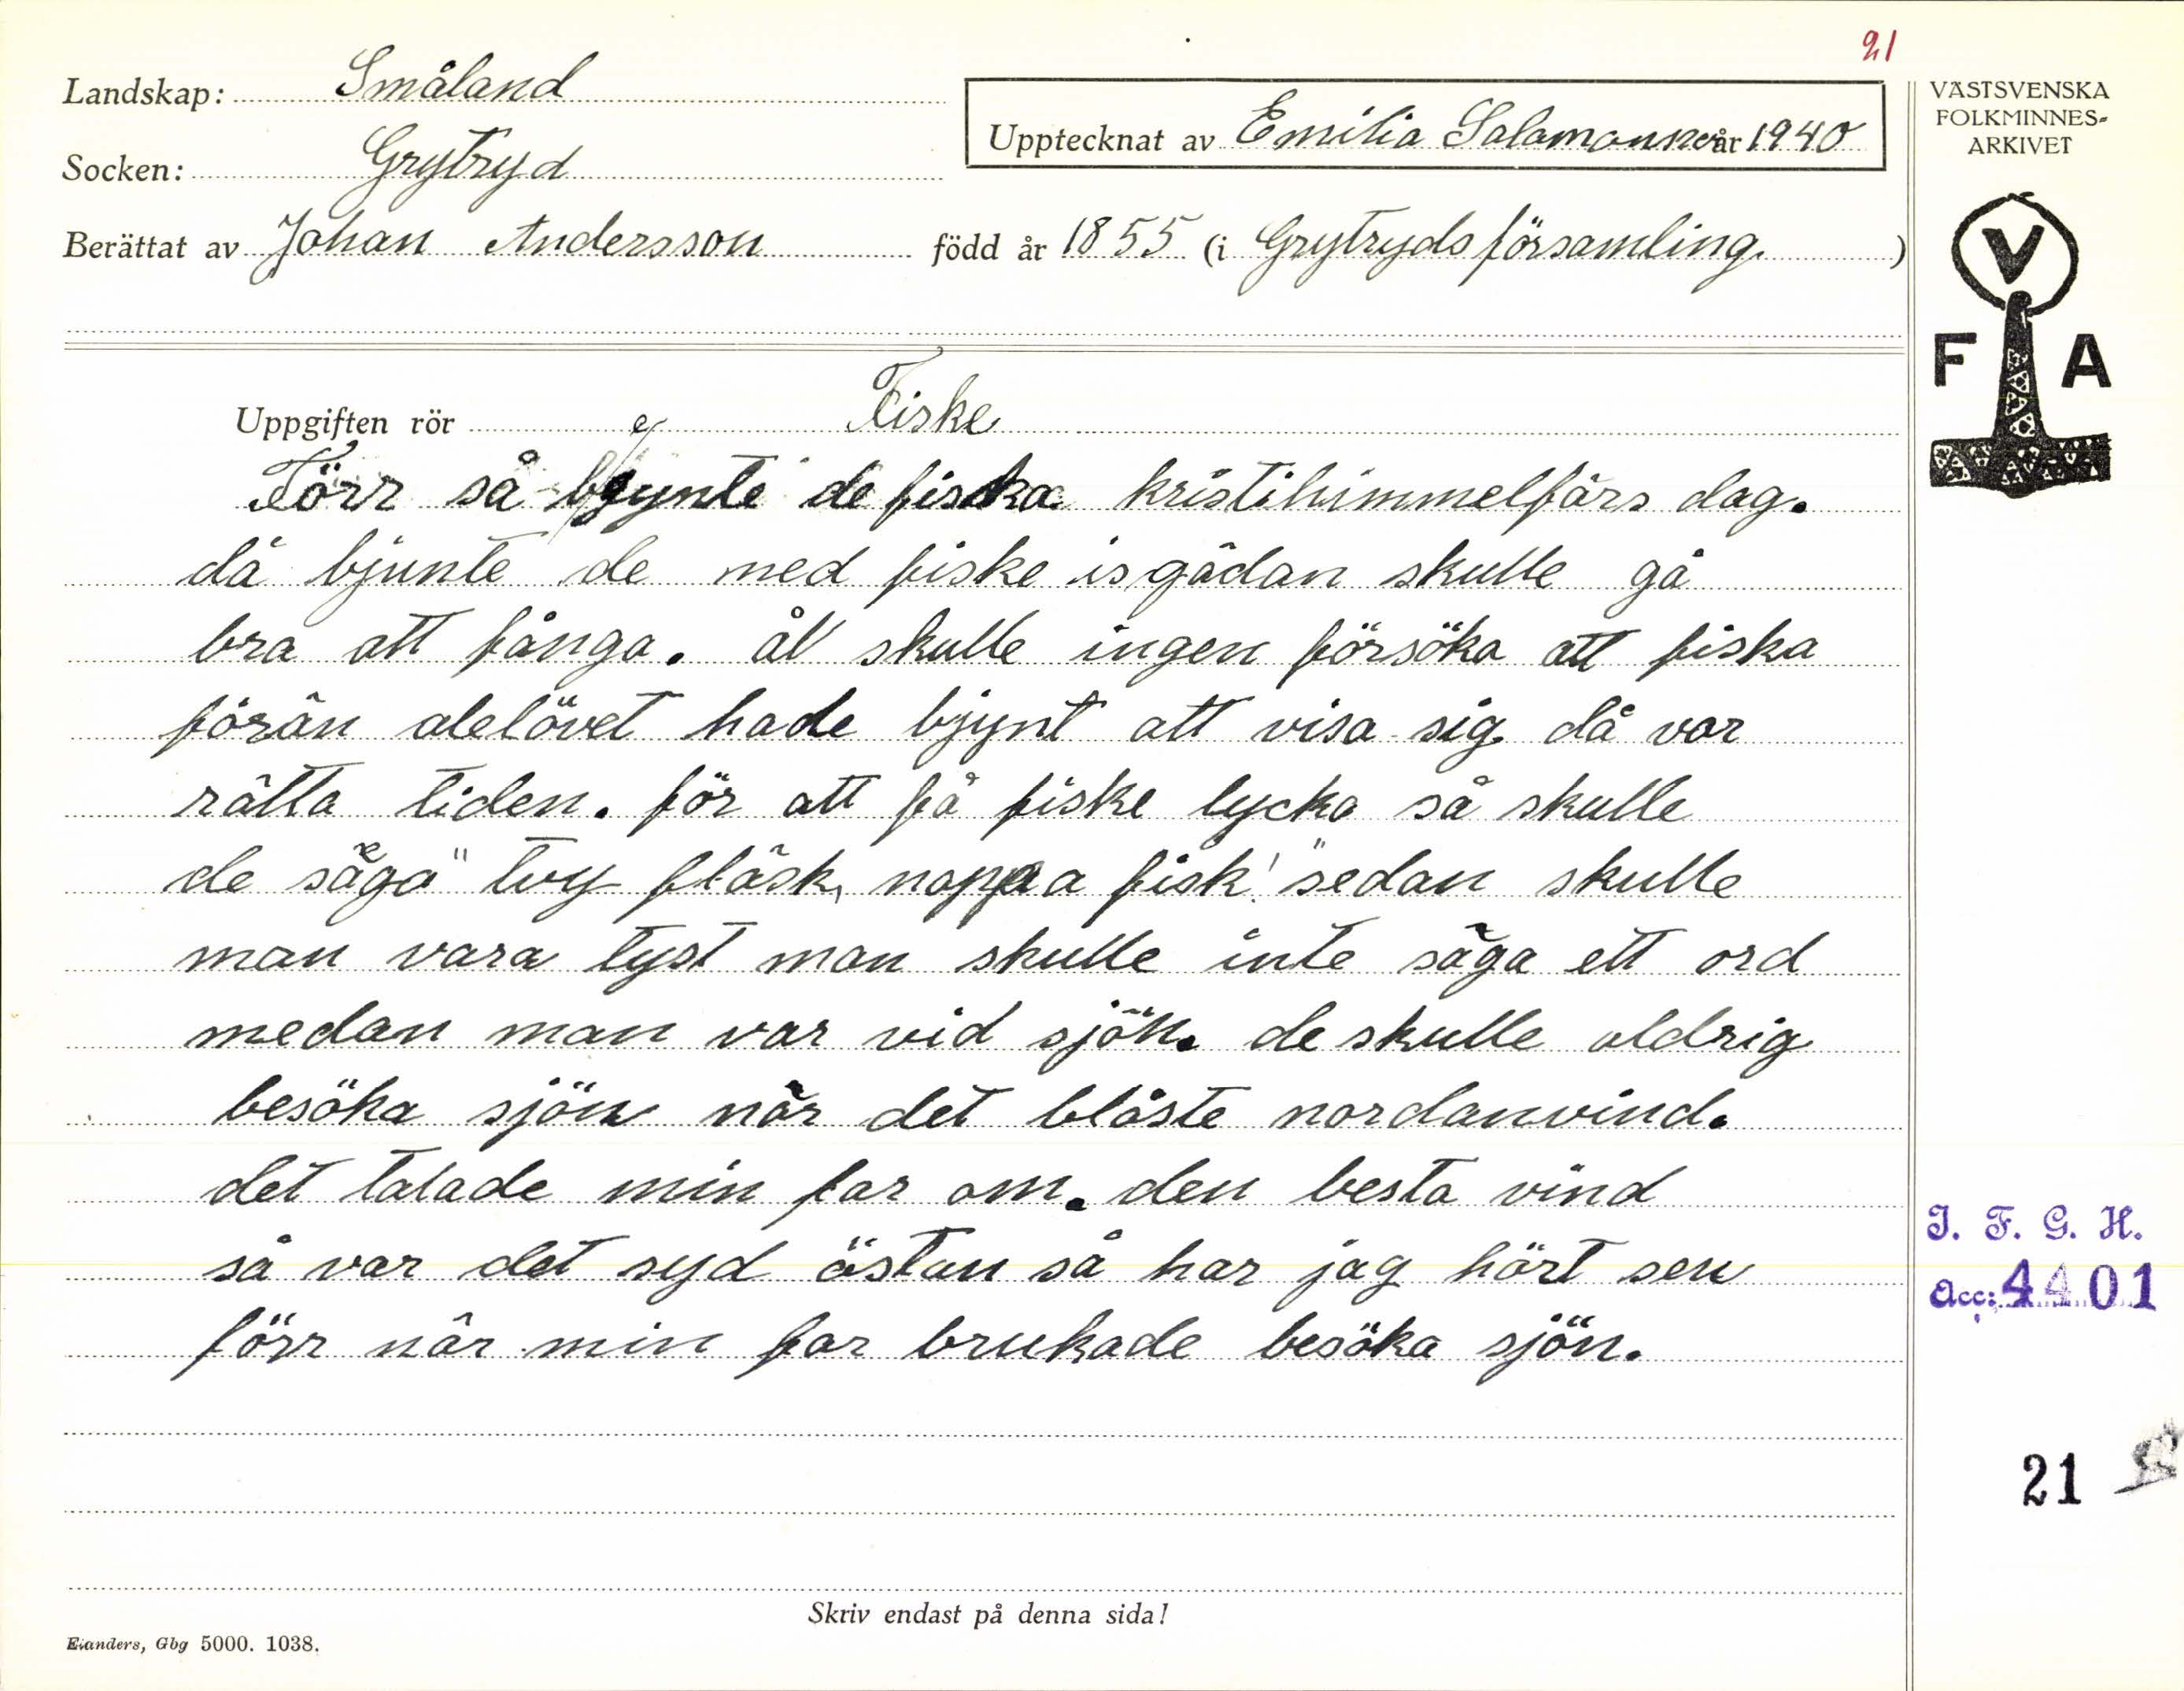 21
Landskap: Småland
Socken: Grytryd
Upptecknat av Emilia Salomonson år 1940
Berättat av Johan Andersson född år 1855 (i Grytryds församling.)
VÄSTSVENSKA
FOLKMINNES-
ARKIVET
V
F A
Uppgiften rör Fiske
Förr så begynte de fiska kristihimmelfärs dag.
då bjunte de med fiske is gädan skulle gå
bra att fånga. ål skulle ingen försöka att fiska
förän alelövet hade bjynt att visa sig. då var
rätta tiden. för att få fiske lycka så skulle
de säga "tvy fläsk, nappa fisk!" sedan skulle
man vara tyst man skulle inte säga ett ord
medan man var vid sjön. de skulle aldrig
besöka sjön när det blåste nordanvind.
det talade min far om. den besta vind
så var det syd östan så har jag hört sen
förr när min far brukade besöka sjön.
I. F. G. H.
Acc: 4401
21
Skriv endast på denna sida!
Elanders, Gbg 5000. 1038.